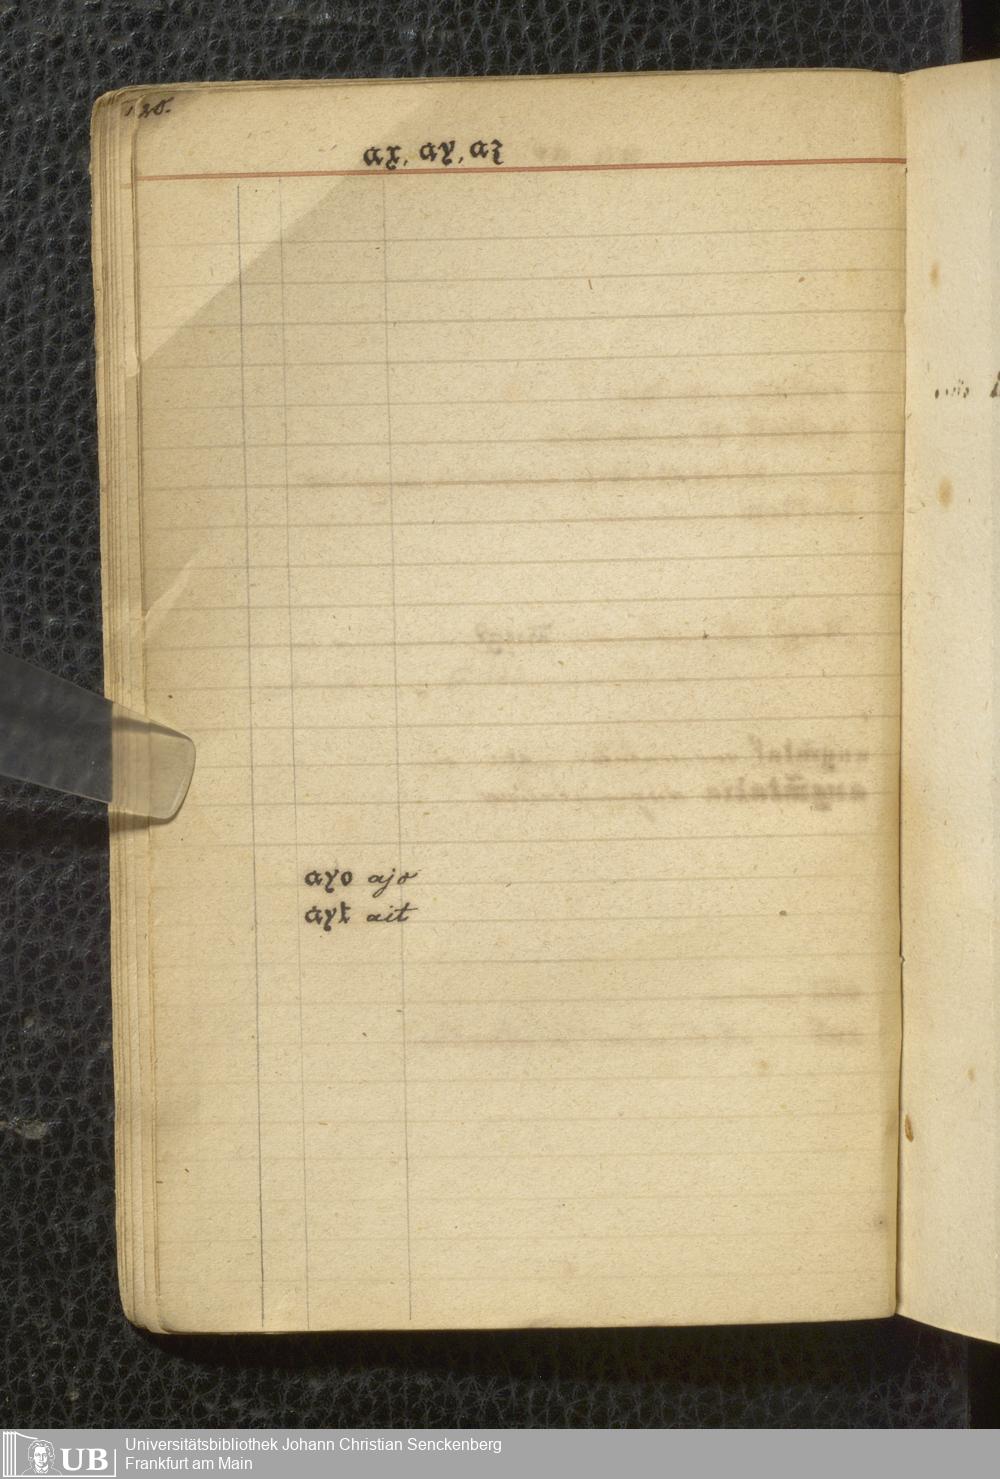 28.
ax, ay, az
ayo ajo
ayt ait
Universitätsbibliothek Johann Christian Senckenberg
Frankfurt am Main
UB